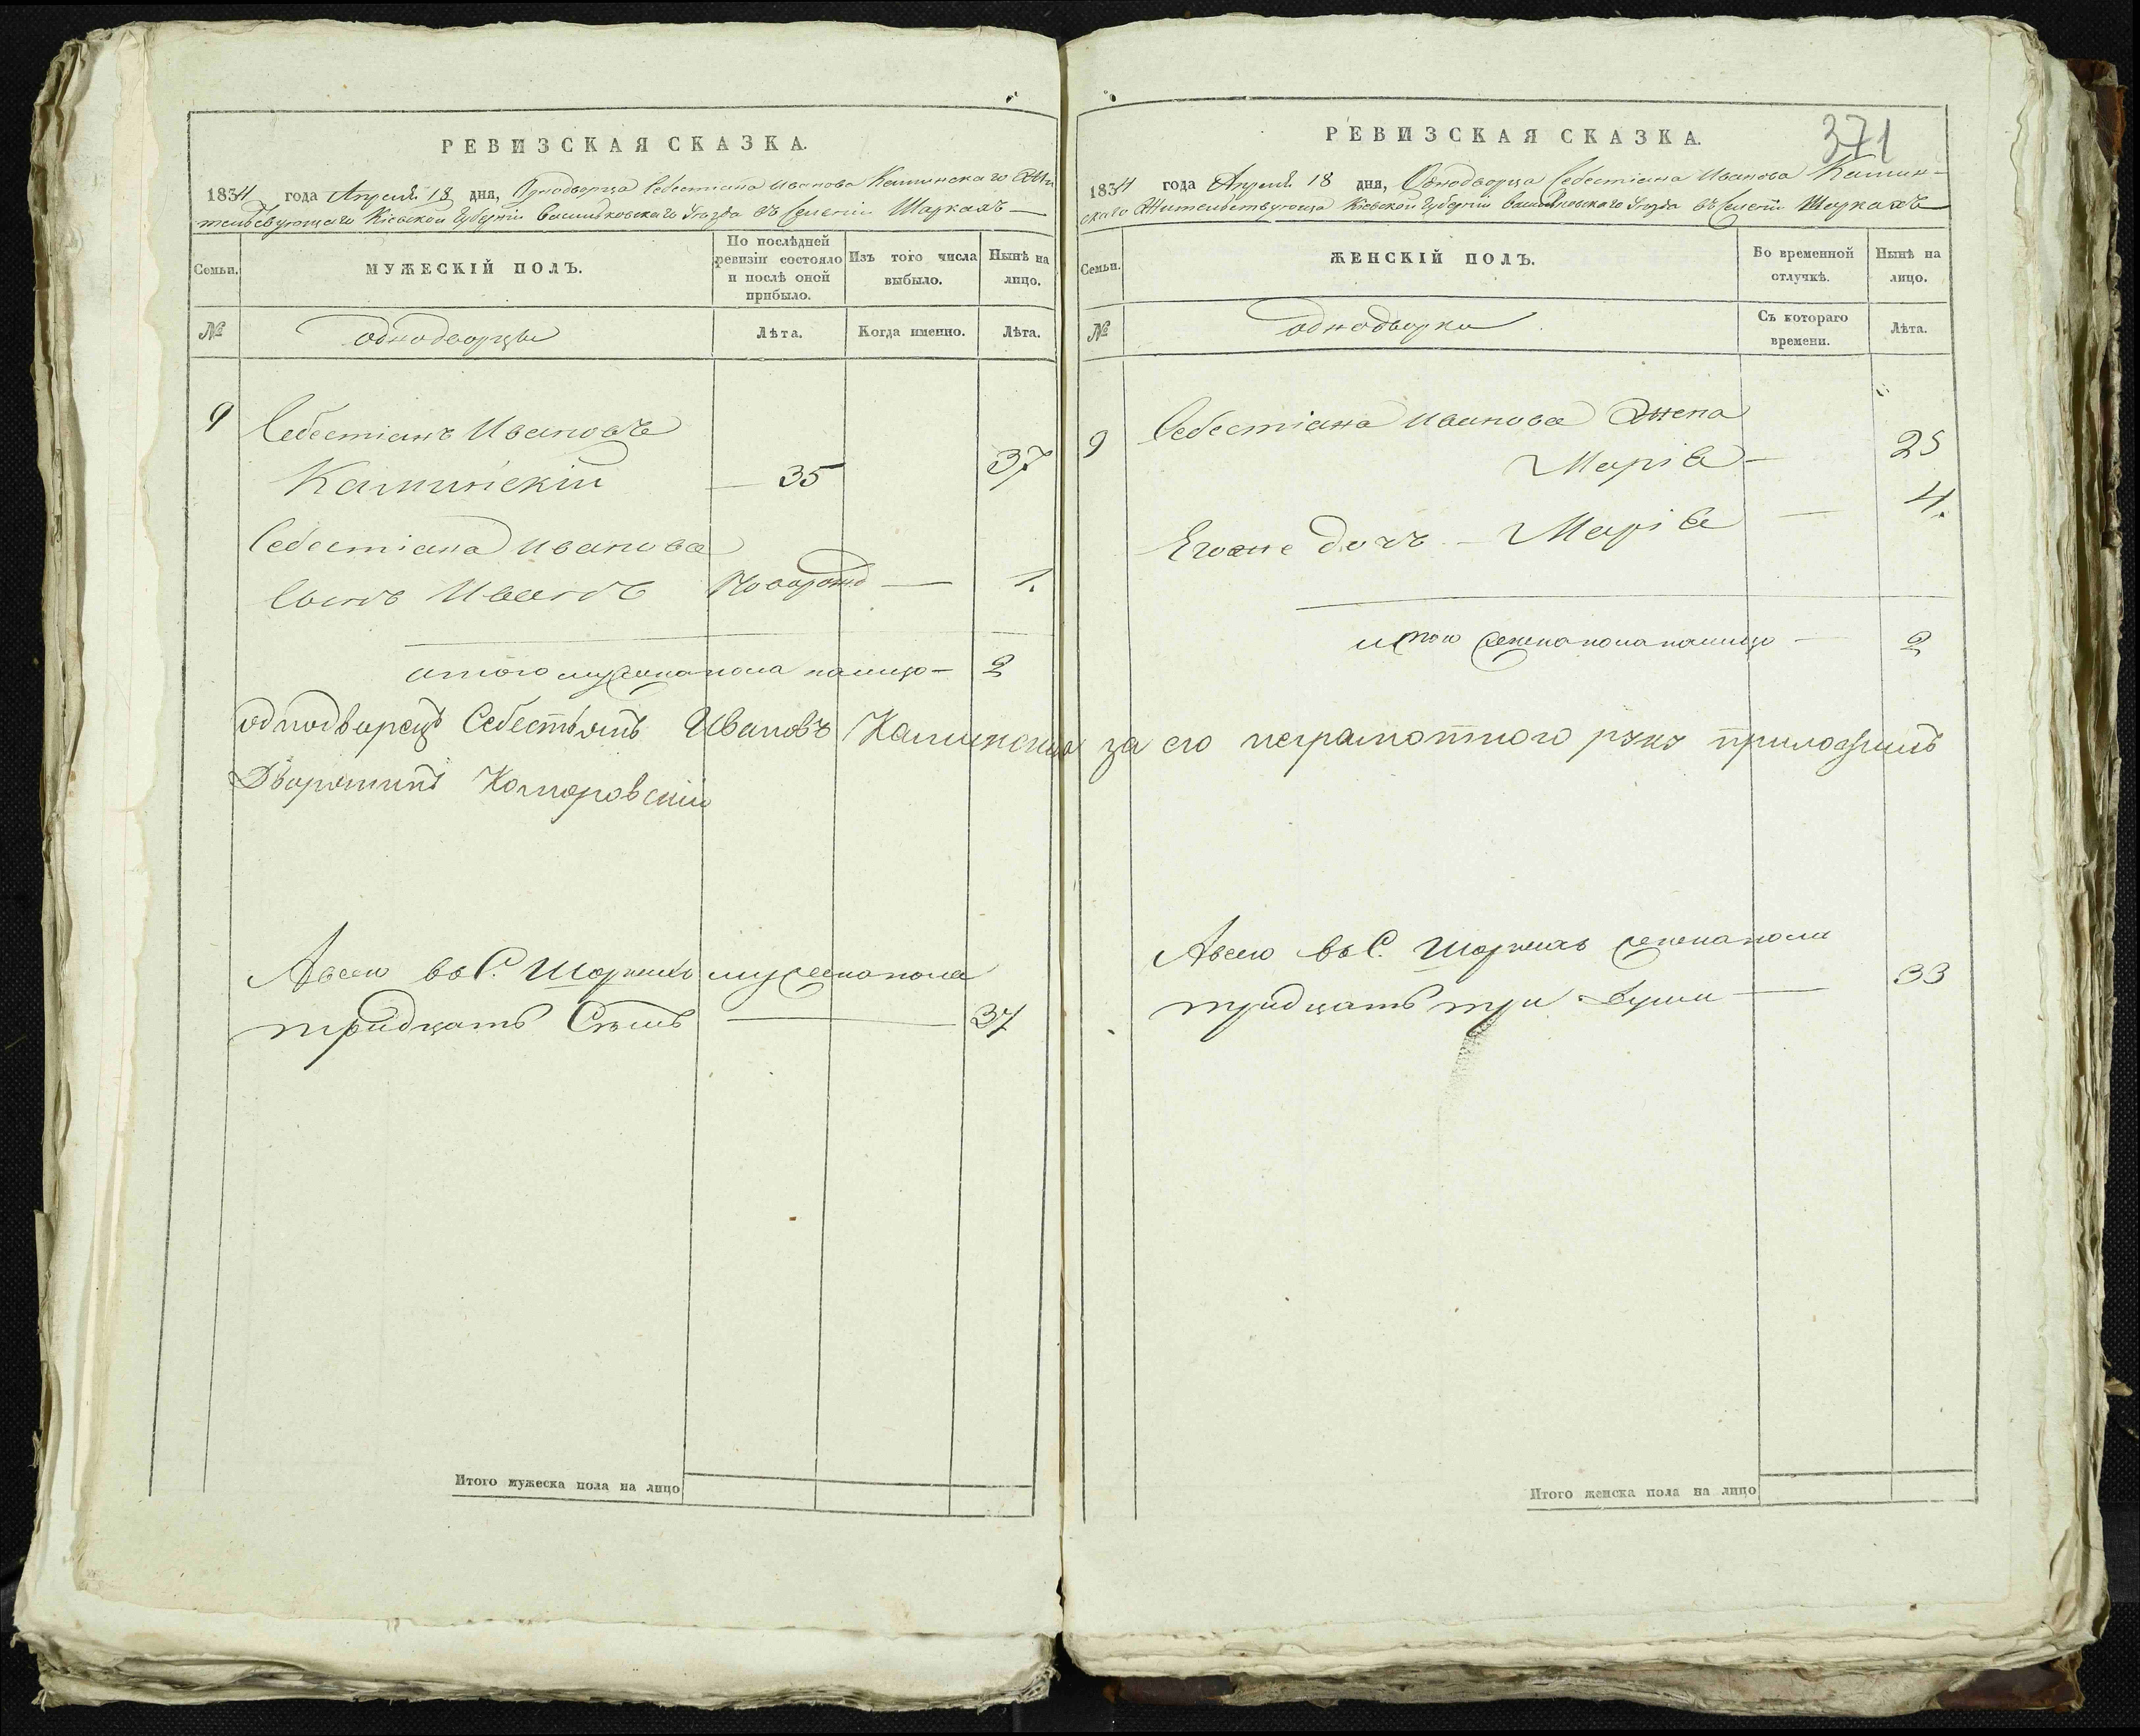 РЕВИЗСКАЯ СКАЗКА.
1834 года Апреля 18 дня, Однодворца Себестіана Иванова Каминскаго Жи
тельствующаго Кіевской Губерніи Васильковскаго Уѣзда въ Селеніи Шаркахъ —
Семьи.
МУЖЕСКІЙ ПОЛЪ.
По послѣдней ревизіи состояло и послѣ оной прибыло.
Изъ того числа выбыло.
Нынѣ на лицо.
№
однодворцы
Лѣта.
Когда именно.
Лѣта.
9 Себестіанъ Ивановъ
Каминскій — 35 37
Себестіана Иванова
Сынъ Иванъ Новорожд — 1.
итого мужеска пола налицо — 2
однодворецъ Себестьянъ Ивановъ Каминский за его неграмотного руку приложилъ
Дворянинъ Комаровскій
Авсего въ С. Шаркахъ мужеска пола
тридцать Семь — 37
Итого мужеска пола на лицо
371
РЕВИЗСКАЯ СКАЗКА.
1834 года Апреля 18 дня, Однодворца Себестіана Иванова Камин-
скаго Жительствующа Кіевской Губерніи Васильковскаго Уѣзда въ Селеніи Шаркахъ
Семьи.
ЖЕНСКІЙ ПОЛЪ.
Во временной отлучкѣ.
Нынѣ на лицо.
№
однодворки
Съ котораго времени.
Лѣта.
9 Себестіана Иванова Жена
Марія — 25
Егоже дочь — Марія — 4.
итого женска пола налицо — 2
Авсего въ С. Шаркахъ женска пола
тридцать три души — 33
Итого женска пола на лицо